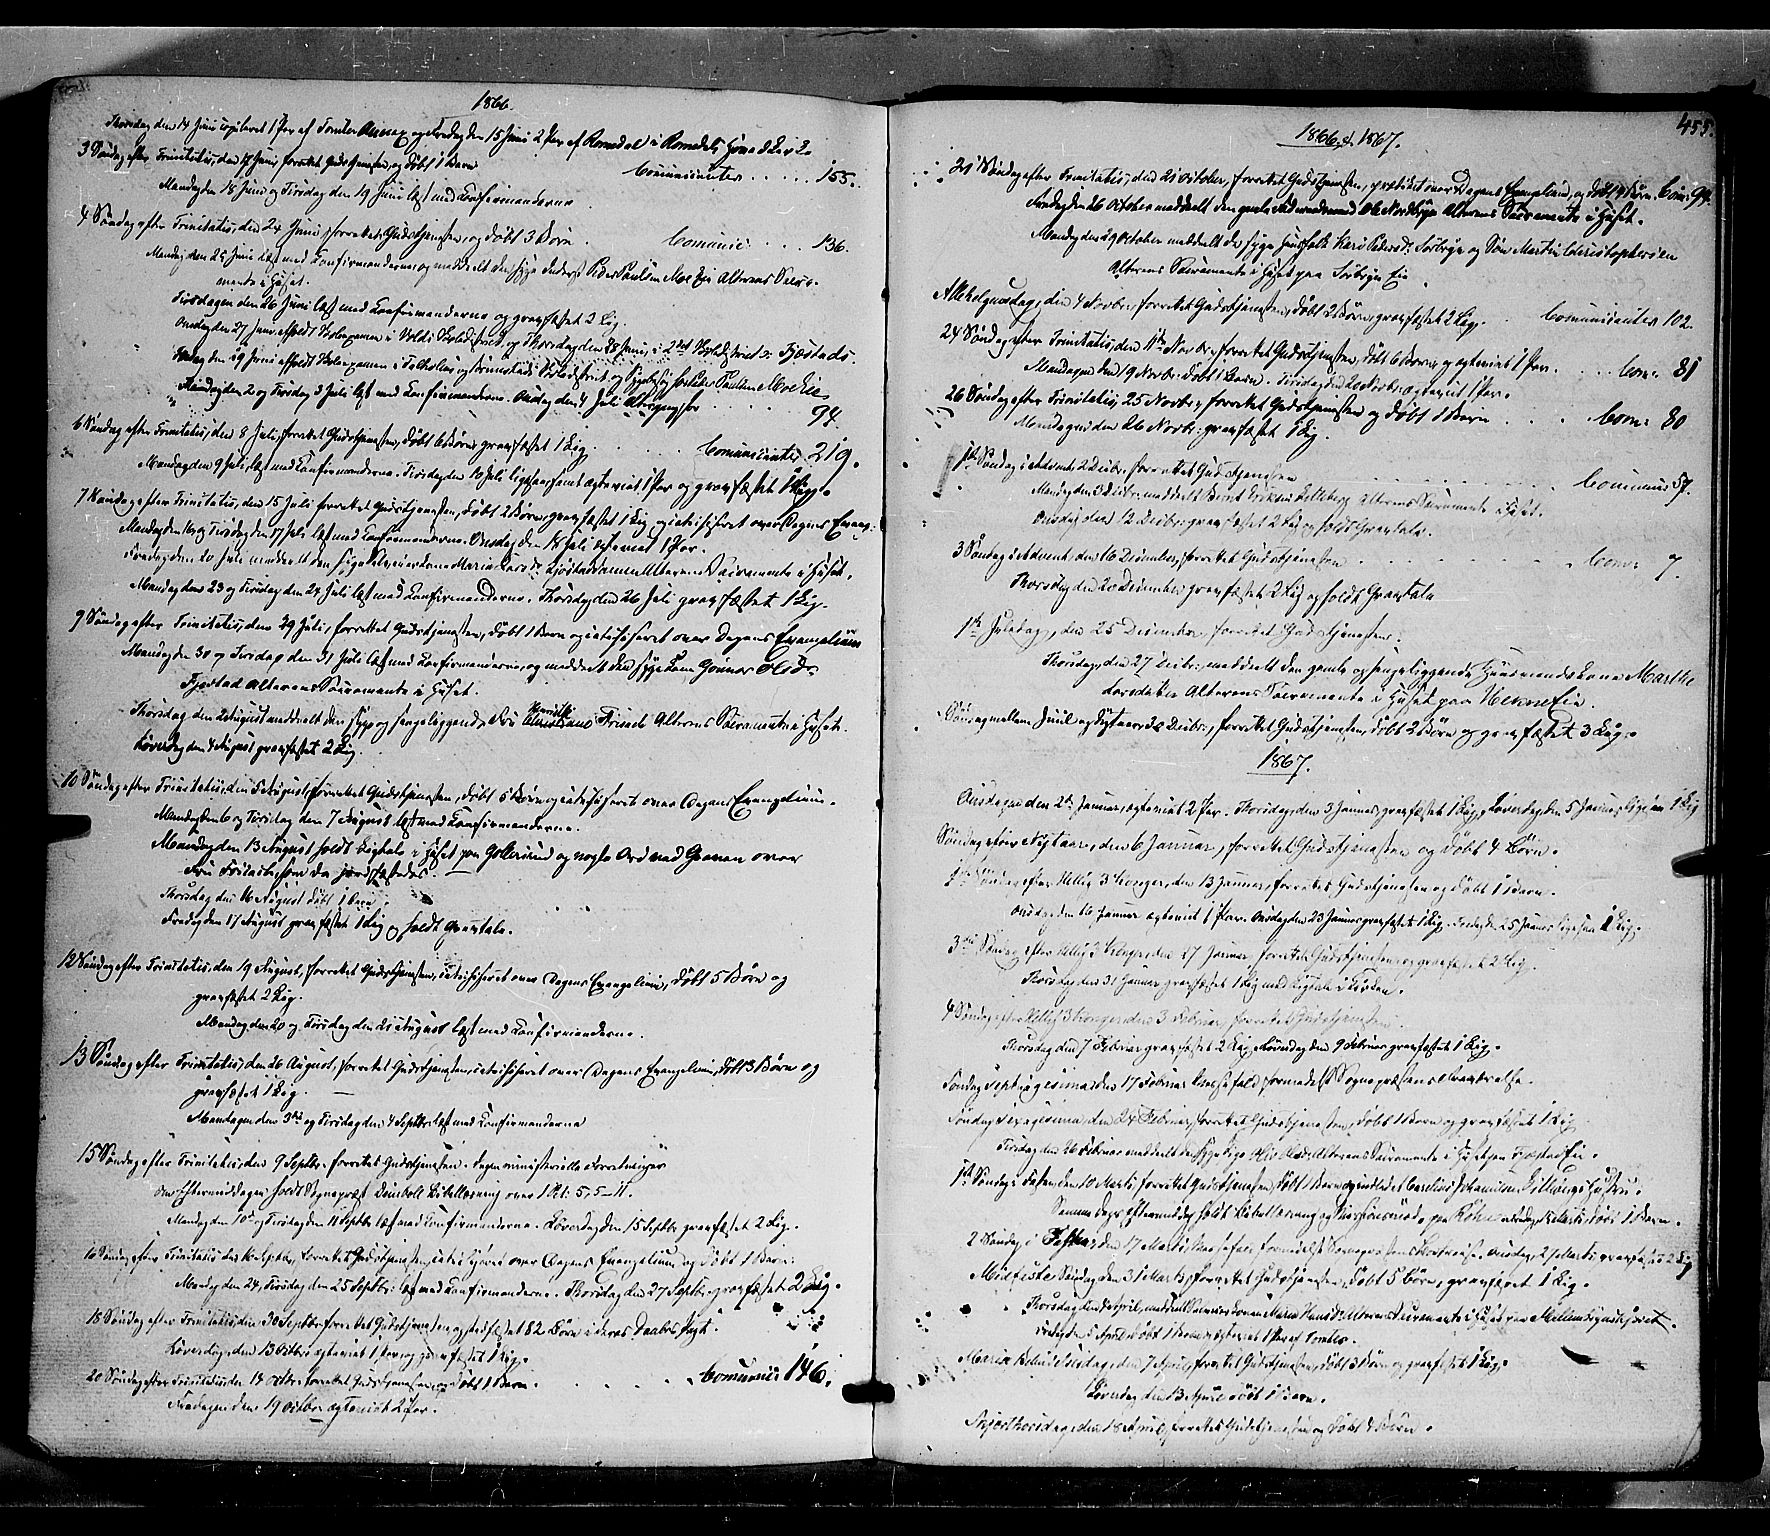 1866.
Thorsdag den 14 Juni copuleret 1 Par af Tomter Annex og Fredag den 15 Juni 2 Par af Romedal i Romedals Hovedkirke
3 Søndag efter Trinitatis, den 17 Juni forrettet Gudstjenesten, og døbt 1 Barn Communicanter 155.
Mandag den 18 Juni og Tirsdag den 19 Juni læst med Confirmanderne
4 Søndag efter Trinitatis, den 24 Juni forrettet Gudstjenesten, og døbt 3 Børn. Communic: 136.
Mandag den 25 Juni læst med Confirmanderne og meddeelt den syge Peder Paulsen Alterens Sacra-
mente i Huset.
Tirsdagen den 26 Juni læst med Confirmanderne og gravfæstet 2 Lig.
Onsdag den 27 Juni afholdt i og Thorsdag den 28 Juni i 2det Fjæstads
den 29 Juni afholdt i og Paulsen
Mandag den 2 og Tirsdag 3 Juli læst med Confirmanderne. Onsdag den 4 Juli 94.
6 Søndag efter Trinitatis, den 8 Juli, forrettet Gudstjenesten, døbt 6 Børn, gravfæstet 1 Lig. Communicanter 219.
Mandag den 9 Juli læst med Confirmanderne. Tirsdag den 10 Juli samt ægteviet 1 Par og gravfæstet 1 Lig.
7 Søndag efter Trinitatis, den 15 Juli forrettet Gudstjenesten, døbt 2 Børn, gravfæstet 1 Lig, catechiseret over Dagens Evang:
Mandag den 16 og Tirsdag den 17 Juli læst med Confirmanderne. Onsdag den 18 Juli ægteviet 1 Par.
Fredag den 20 Juli meddeelt den syge Maria Larsdr. Alterens Sacramente i Huset.
Mandag den 23 og Tirsdag den 24 Juli læst med Confirmanderne. Thorsdag den 26 Juli gravfæstet 1 Lig.
9 Søndag efter Trinitatis, den 29 Juli, forrettet Gudstjenesten, døbt 1 Barn og catechiseret over Dagens Evangelium
Mandag den 30 og Tirsdag den 31 Juli læst med Confirmanderne, og meddeelt den syge Kone Gunnor Olsdr.
Fjæstad Alterens Sacramente i Huset.
Thorsdag den 2 August meddeelt den syge og sengeliggende Frue Alterens Sacramente i Huset.
Løverdag den 4 August gravfæstet 2 Lig.
10 Søndag efter Trinitatis, den 5 August, forrettet Gudstjenesten, døbt 5 Børn og catechiseret over Dagens Evangelium.
Mandag den 6 og Tirsdag den 7 August læst med Confirmanderne.
Mandag den 13 August holdt Ligtale i Huset paa og nogle Ord ved Graven over
Fru som da jordfæstedes.
Thorsdag den 16 August døbt 1 Barn.
Fredag den 17 August gravfæstet 1 Lig og holdt Gravtale.
12 Søndag efter Trinitatis, den 19 August, forrettet Gudstjenesten, catechiseret over Dagens Evangelium, døbt 5 Børn og
gravfæstet 2 Lig.
Mandag den 20 og Tirsdag den 21 August læst med Confirmanderne.
13 Søndag efter Trinitatis, den 26 August, forrettet Gudstjenesten, catechiseret over Dagens Evangelium, døbt 3 Børn og
gravfæstet 1 Lig.
Mandagen den 3die og Tirsdag den 4 Septbr. læst med Confirmanderne
15 Søndag efter Trinitatis, den 9 Septbr. forrettet Gudstjenesten. Ingen ministerielle Forretninger
Om Eftermiddagen holdt Sognepræst Bibellæsning over 1 Pet: 5, 5-11.
Mandag den 10 og Tirsdag den 11 Septbr. læst med Confirmanderne. Løverdag den 15 Septbr. gravfæstet 2 Lig.
16 Søndag efter Trinitatis den 16 Septbr. forrettet Gudstjenesten, catechiseret over Dagens Evangelium og døbt 1 Barn.
Mandag den 24, Tirsdag den 25 Septbr. læst med Confirmanderne. Thorsdag den 27 Septbr. gravfæstet 2 Lig.
18 Søndag efter Trinitatis, den 30 Septbr. forrettet Gudstjenesten, og stadfæstet 82 Børn i deres Daabes Pagt.
Løverdag den 13 Octbr. ægteviet 1 Par og gravfæstet 1 Lig.
20 Søndag efter Trinitatis, den 14 Octbr. forrettet Gudstjenesten, og døbt 1 Barn. Communic: 146.
Fredagen den 19 Octbr. ægteviet 2 Par.
455.
1866 & 1867.
21 Søndag efter Trinitatis, den 21 October, forrettet Gudstjenesten, prædiket over Dagens Evangelium, og døbt 4 Børn. Com: 94.
Fredag den 26 October meddeelt den gamle Alterens Sacramente i Huset.
Mandag den 29 October meddeelt de syge Huusfolk Kari Pedersdr. Sørbye og Søn Martin Christophersen
Alterens Sacramente i Huset paa Sørbye Eie
Allehelgensdag, den 4 Novbr., forrettet Gudstjenesten, døbt 2 Børn, gravfæstet 2 Lig. Communicanter 102.
24 Søndag efter Trinitatis, den 11te Novbr. forrettet Gudstjenesten, døbt 6 Børn og ægteviet 1 Par. Com: 81
Mandagen den 19 Novbr. døbt 1 Barn. Tirsdag den 20 Novbr. ægteviet 1 Par.
26 Søndag efter Trinitatis, 25 Novbr., forrettet Gudstjenesten og døbt 1 Barn Com: 80
Mandagen den 26 Novbr. gravfæstet 1 Lig.
1ste Søndag i Advent, 2 Decbr. forrettet Gudstjenesten Communic 57.
Mandag den 3 Decbr. meddeelt Alterens Sacramente i Huset.
Onsdag den 12 Decbr. gravfæstet 2 Lig og holdt Gravtale.
3 Søndag i Advent den 16 December, forrettet Gudstjenesten Com: 7.
Thorsdag den 20 December gravfæstet 2 Lig og holdt Gravtale
1ste Juledag, den 25 December forrettet Gudstjenesten.
Thorsdag, den 27 Decbr. meddeelt den gamle og sengeliggende Huusmandskone Marthe
Larsdatter Alterens Sacramente i Huset paa Eie.
Søndag mellem Juul og Nytaar, 30 Decbr., forrettet Gudstjenesten, døbt 2 Børn og gravfæstet 3 Lig.
1867.
Onsdagen den 2den Januar, ægteviet 2 Par. Thorsdag den 3 Januar, gravfæstet 1 Lig, Løverdag den 5 Januar, ligesaa 1 Lig
Søndag efter Nytaar, den 6 Januar, forrettet Gudstjenesten og døbt 4 Børn.
1ste Søndag efter Hellig 3 Konger, den 13 Januar, forrettet Gudstjenesten og døbt 1 Barn.
Onsdag den 16 Januar ægteviet 1 Par. Onsdag den 23 Januar gravfæstet 1 Lig. Fredag den 25 Januar ligesaa 1 Lig.
3die Søndag efter Hellig 3 Konger den 27 Januar forrettet Gudstjenesten og gravfæstet 2 Lig.
Thorsdag den 31 Januar gravfæstet 1 Lig med Ligtale i Kirken.
4 Søndag efter Hellig 3 Konger den 3 Februar, forrettet Gudstjenesten.
Thorsdag den 7 Februar gravfæstet 2 Lig, Løverdag den 9 Februar gravfæstet 1 Lig.
Søndag Septuagesima den 17 Februar Messefald formedelst Sognepræstens Fraværelse.
Søndag Sexagesima, den 24 Februar, forrettet Gudstjenesten, døbt 1 Barn og gravfæstet 1 Lig
Tirsdag den 26 Februar meddeelt den sygelige Alterens Sacramente i Huset paa Fjæstad Eie.
1ste Søndag i Fasten, den 10 Marts, forrettet Gudstjenesten, døbt 1 Barn og Johannesen Hustru.
Samme Dags Eftermiddag holdt Bibellæsning og Missionsmøde paa døbt 1 Barn.
2 Søndag i Fasten, den 17 Marts, Messefald formedelst Sognepræstens Onsdag, 27 Marts gravfæstet 2 Lig
Midfaste Søndag den 31 Marts, forrettet Gudstjenesten, døbt 5 Børn, gravfæstet 1 Lig.
Thorsdag den April, meddeelt Maria Alterens Sacramente i Huset paa
Fredag den 5 April døbt 1 Barn og ægteviet 1 Par af Tomter.
Mariæ Bebudelsesdag, den 7 April, forrettet Gudstjenesten, døbt 3 Børn og gravfæstet 1 Lig.
Løverdag den 13 April døbt 1 Barn.
Skjærthorsdag, den 18 April, forrettet Gudstjenesten og døbt 4 Børn.